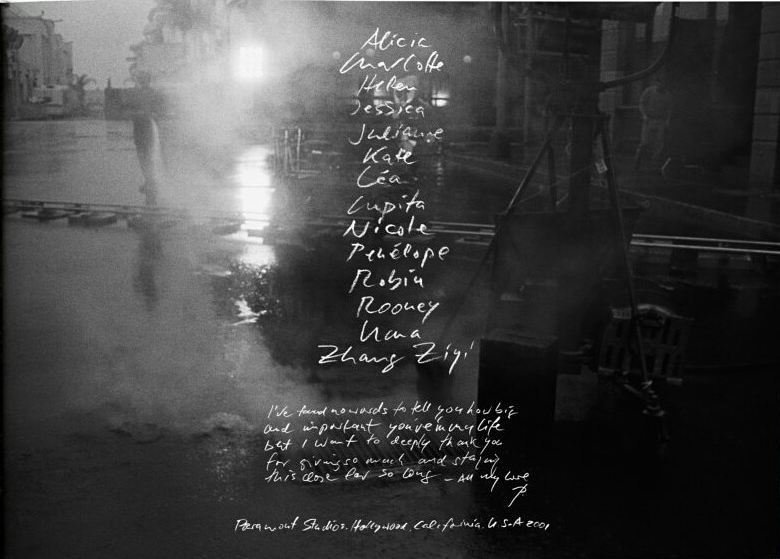 Alicia
Charlotte
Helen
Jessica
Julianne
Kate
Léa
Lupita
Nicole
Penélope
Robin
Rooney
Uma
Zhang Ziyi
I've found no words to tell you how big
and important you've in my life
but I want to deeply thank you
for giving so much and staying
this close for so long – All my love
P
Paramount Studios. Hollywood, California. U.S.A 2001